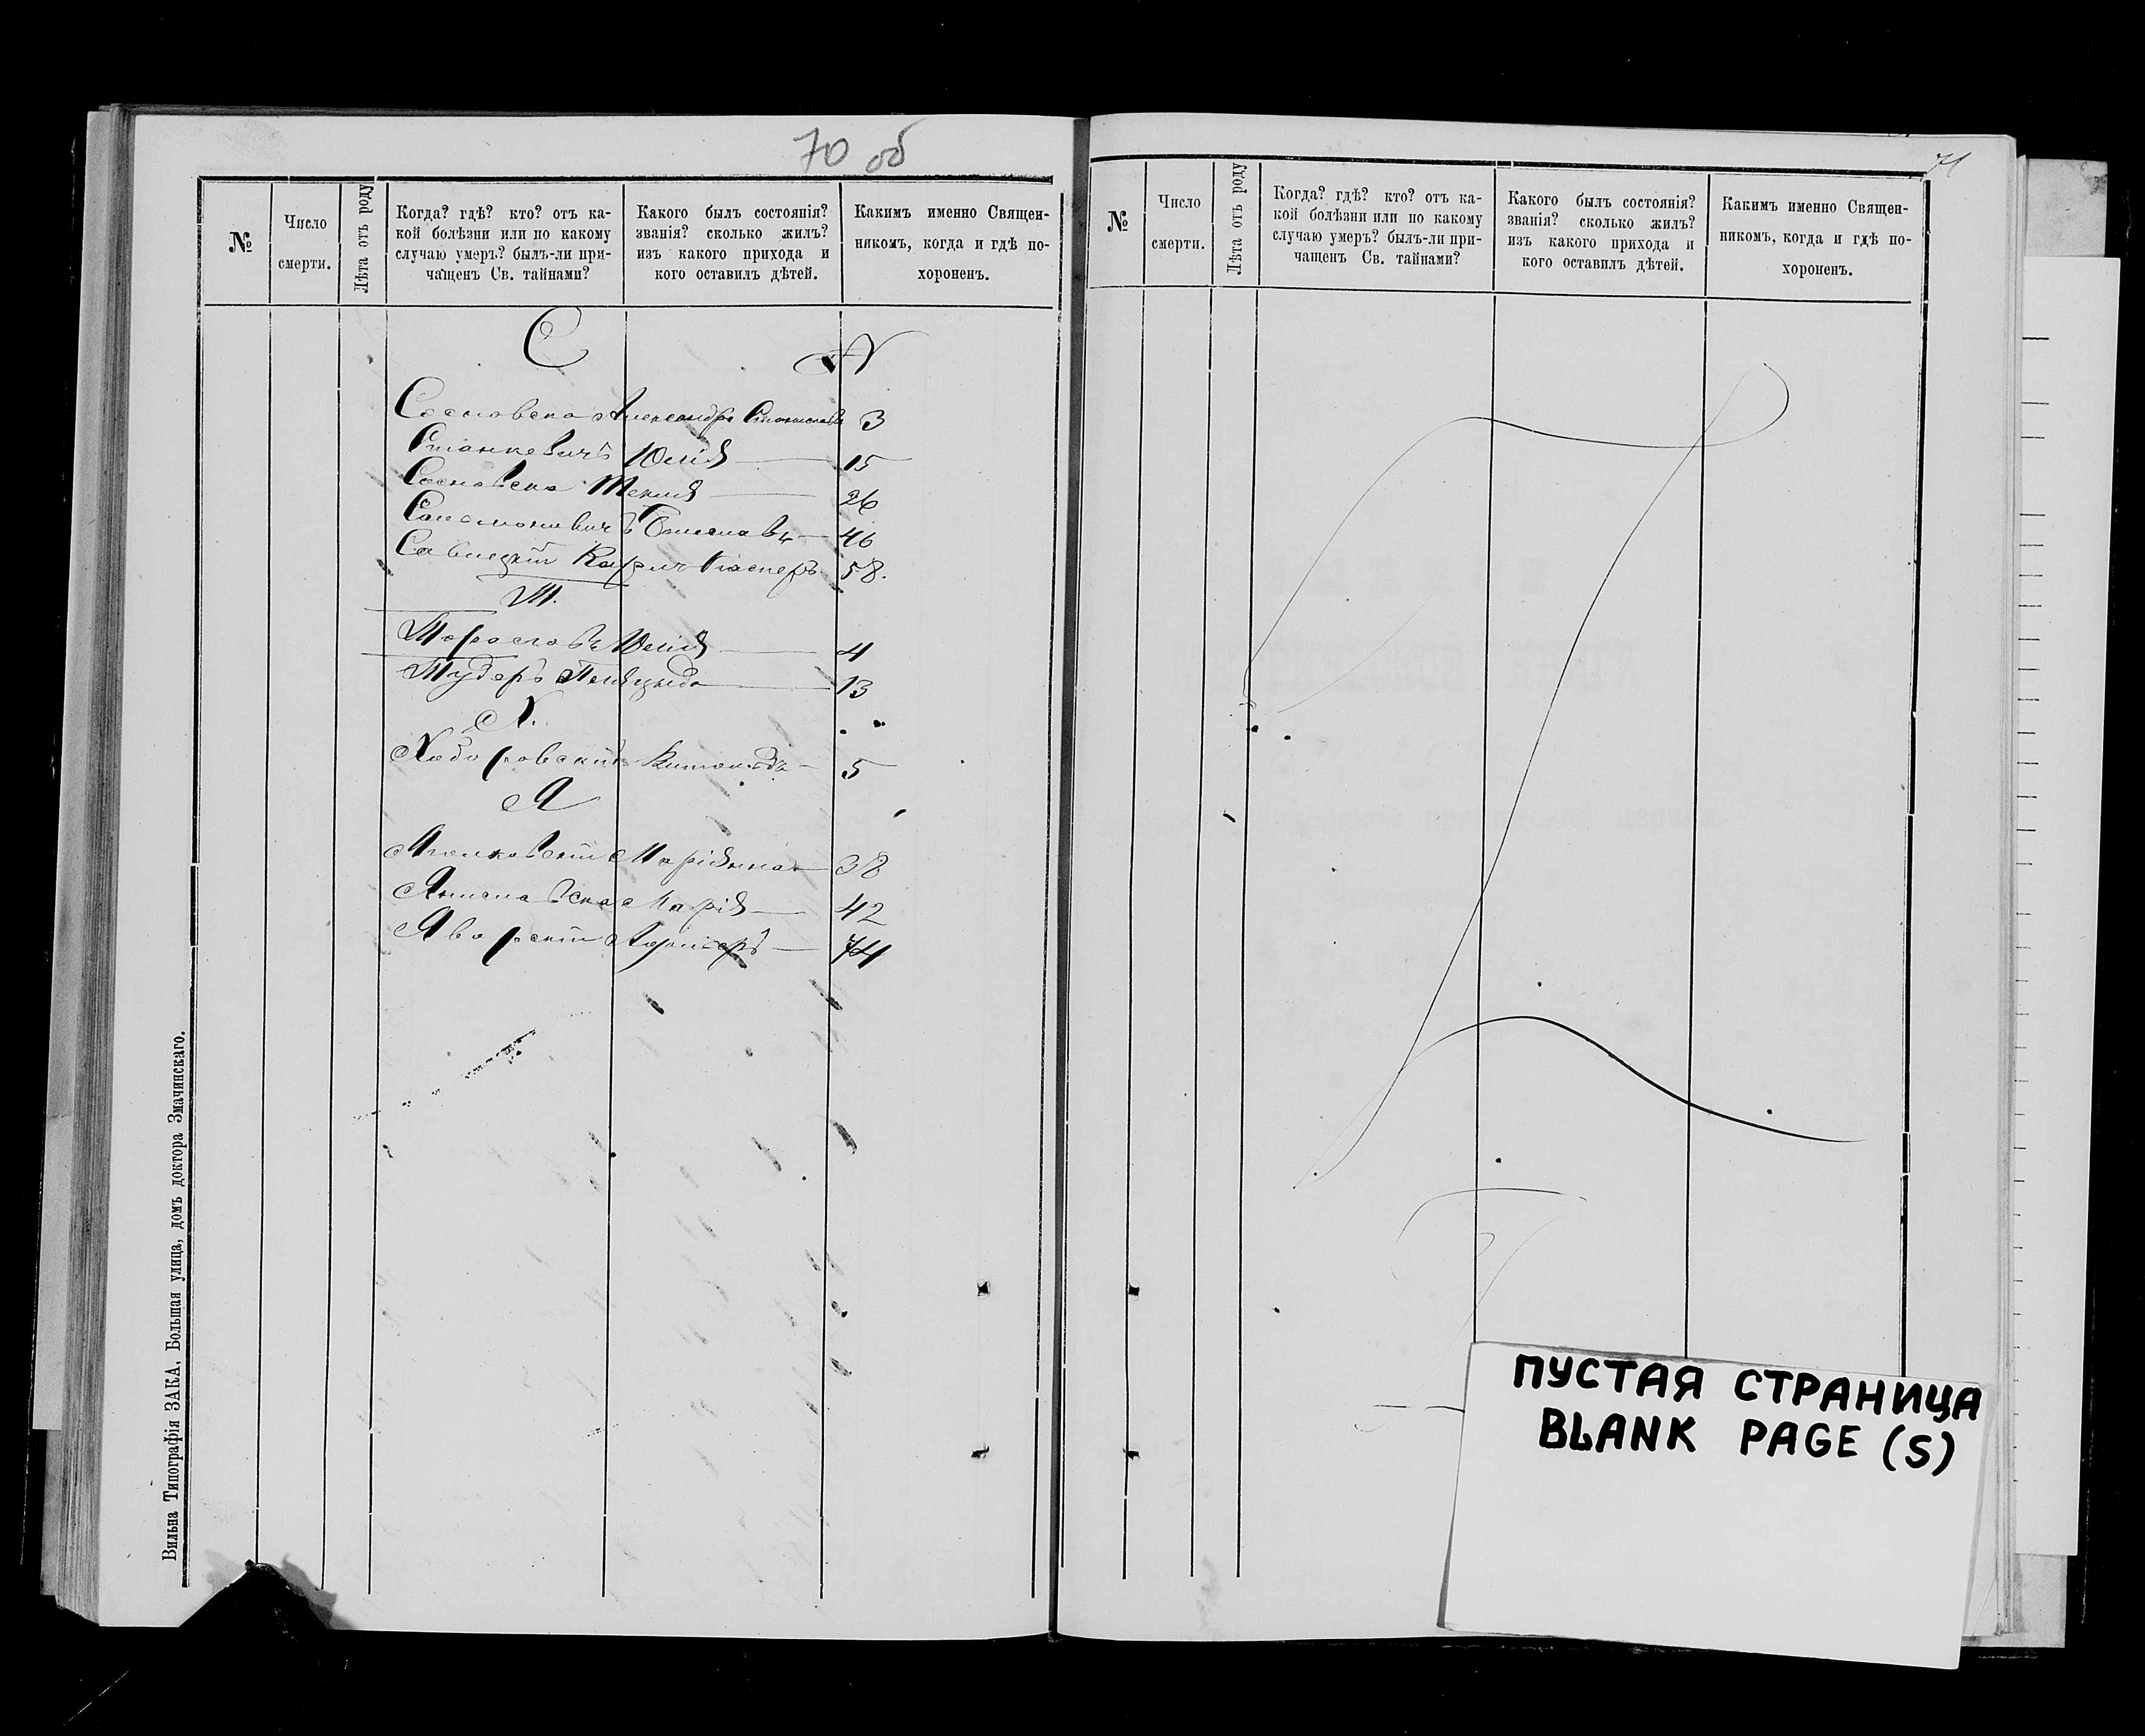 70 об
№
Число смерти.
Лѣта отъ роду
Когда? гдѣ? кто? отъ ка-
кой болѣзни или по какому
случаю умеръ? былъ-ли при-
чащенъ Св. тайнами?
Какого былъ состоянія?
званія? сколько жилъ?
изъ какого прихода и
кого оставилъ дѣтей.
Какимъ именно Священ-
никомъ, когда и гдѣ по-
хороненъ.
С №
Сосновска Александра 3
Станкевичъ Юлія 15
Сосновска Текля 26
46
Савицкій Карлъ Касперъ 58.
Т.
Юлія 4
13
Х.
Ходоровскій Витольдъ 5
Я
Маріянна 38
Марія 42
Яворскій 74
Вильна Типографія ЗАКА, Большая улица, домъ доктора Змачинскаго.
71
№
Число смерти.
Лѣта отъ роду
Когда? гдѣ? кто? отъ ка-
кой болѣзни или по какому
случаю умеръ? былъ-ли при-
чащенъ Св. тайнами?
Какого былъ состоянія?
званія? сколько жилъ?
изъ какого прихода и
кого оставилъ дѣтей.
Какимъ именно Священ-
никомъ, когда и гдѣ по-
хороненъ.
ПУСТАЯ СТРАНИЦА
BLANK PAGE (S)